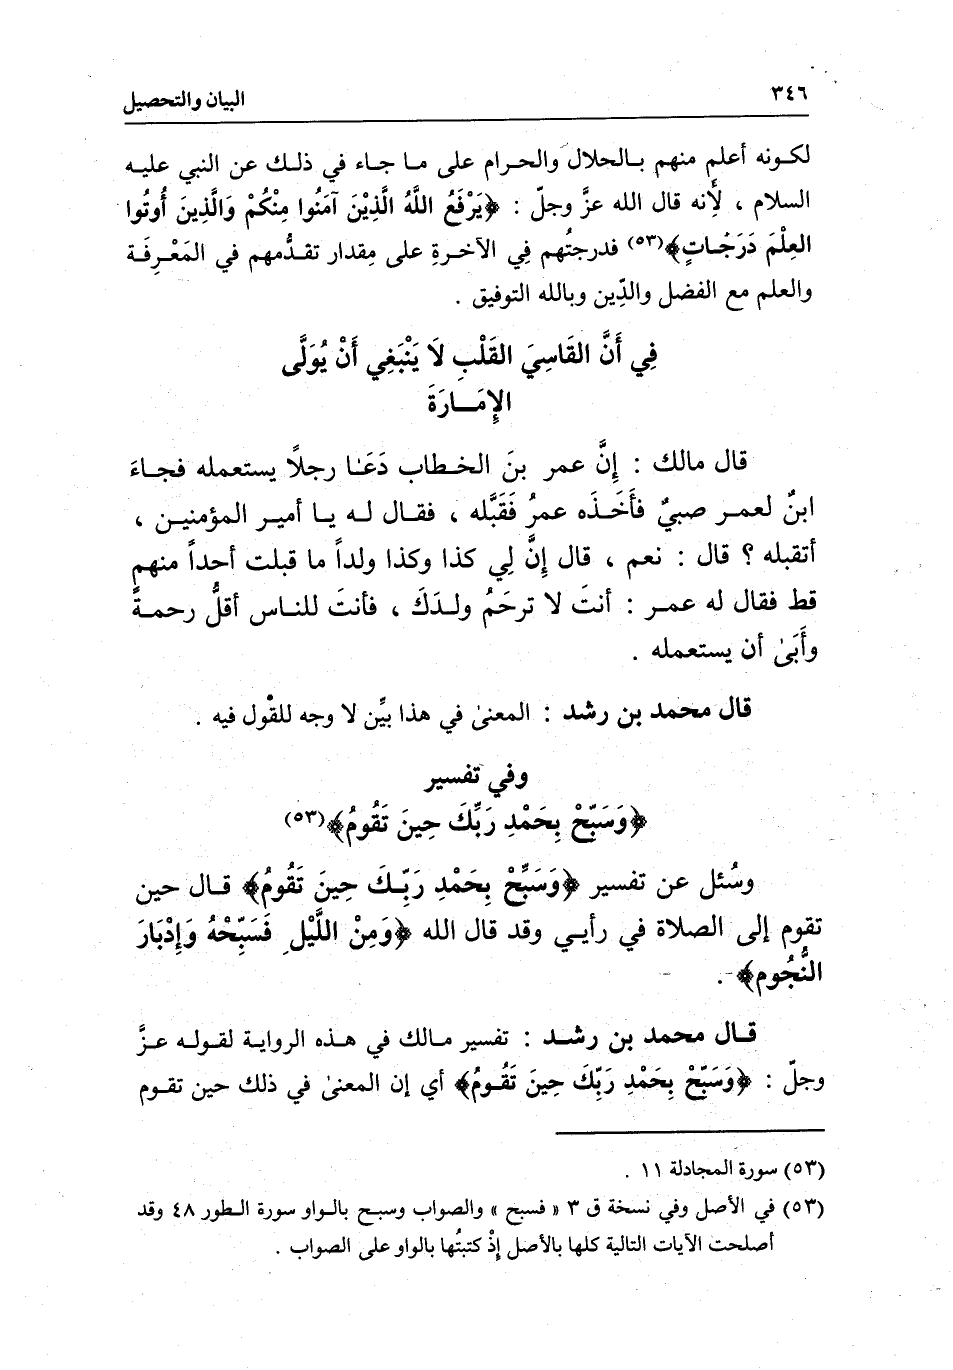 ٣٤٦ البيان والتحصيل
لكونه أعلم منهم بالحلال والحرام على ما جاء في ذلك عن النبي عليه
السلام ، لأنه قال الله عزَّ وجلّ : ﴿يَرْفَعُ اللَّهُ الَّذِيْنَ آمَنُوا مِنْكُمْ وَالَّذِينَ أُوتُوا
العِلْمَ دَرَجَاتٍ﴾(٥٣) فدرجتُهم فِي الآخرةِ على مِقدار تقدُّمهم في المَعْرِفَة
والعلم مع الفضل والدِّين وبالله التوفيق .
فِي أَنَّ القَاسِيَ القَلْبِ لَا يَنْبَغِي أَنْ يُوَلَّى
الإِمَارَةَ
قال مالك : إنَّ عمر بنَ الخطاب دَعَا رجلاً يستعمله فجاءَ
ابنٌ لعمر صبيٌ فأَخَذَه عمرُ فَقَبَّله ، فقال له يا أمير المؤمنين ،
أتقبله ؟ قال : نعم ، قال إنَّ لِي كذا وكذا ولداً ما قبلت أحداً منهم
قط فقال له عمر : أنتَ لا ترحَمُ ولدَكَ ، فأنتَ للناس أقلُّ رحمةً
وأَبَىٰ أن يستعمله .
قال محمد بن رشد : المعنىٰ في هذا بيِّن لا وجه للقول فيه .
وفي تفسير
﴿وَسَبِّحْ بِحَمْدِ رَبِّكَ حِينَ تَقُومُ﴾(٥٣)
وسُئل عن تفسير ﴿وَسَبِّحْ بِحَمْدِ رَبِّكَ حِينَ تَقُومُ﴾ قال حين
تقوم إلى الصلاة في رأيي وقد قال الله ﴿وَمِنْ اللَّيْلِ فَسَبِّحْهُ وَإِدْبَارَ
النُّجُوم﴾ .
قال محمد بن رشد : تفسير مالك في هذه الرواية لقوله عزَّ
وجلّ : ﴿وَسَبِّحْ بِحَمْدِ رَبِّكَ حِينَ تَقُومُ﴾ أي إن المعنىٰ في ذلك حين تقوم
(٥٣) سورة المجادلة ١١ .
(٥٣) في الأصل وفي نسخة ق ٣ « فسبح » والصواب وسبح بالواو سورة الطور ٤٨ وقد
أصلحت الآيات التالية كلها بالأصل إذْ كتبتُها بالواو على الصواب .